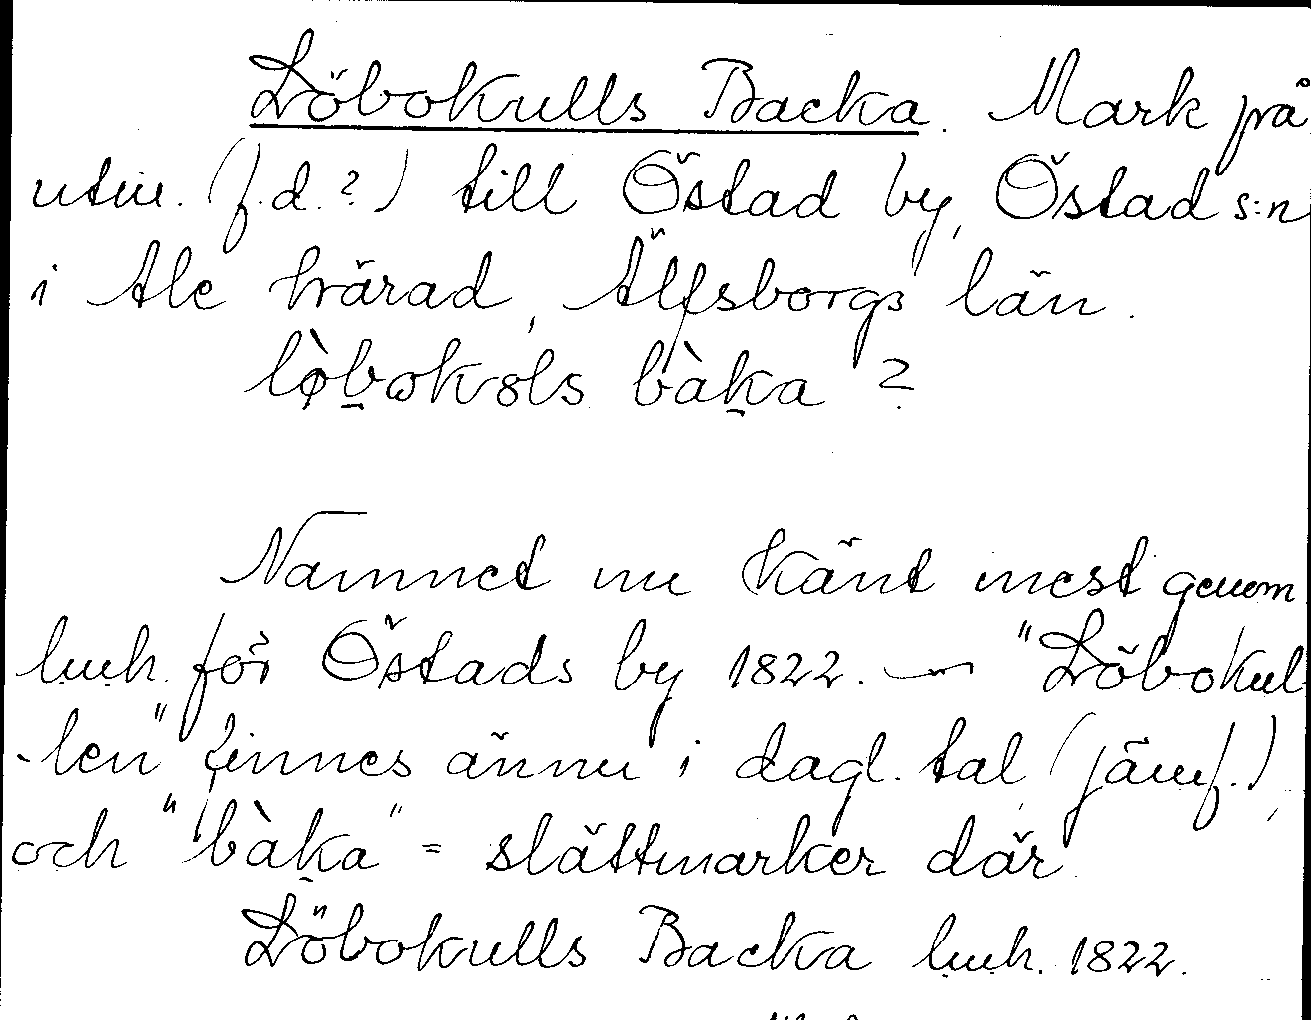 Löbokulls Backa. Mark på
utm. (f.d.?) till Östad by, Östad s:n
i Ale härad, Älfsborgs län.
lø̀b̠ωkɷls bàk̠a ?
Namnet nu känt mest genom
lmh. för Östads by 1822. — "Löbokul
-len" finnes ännu i dagl. tal (jämf.),
och "bàk̠a" = slåttmarker där.
Löbokulls Backa lmh. 1822.